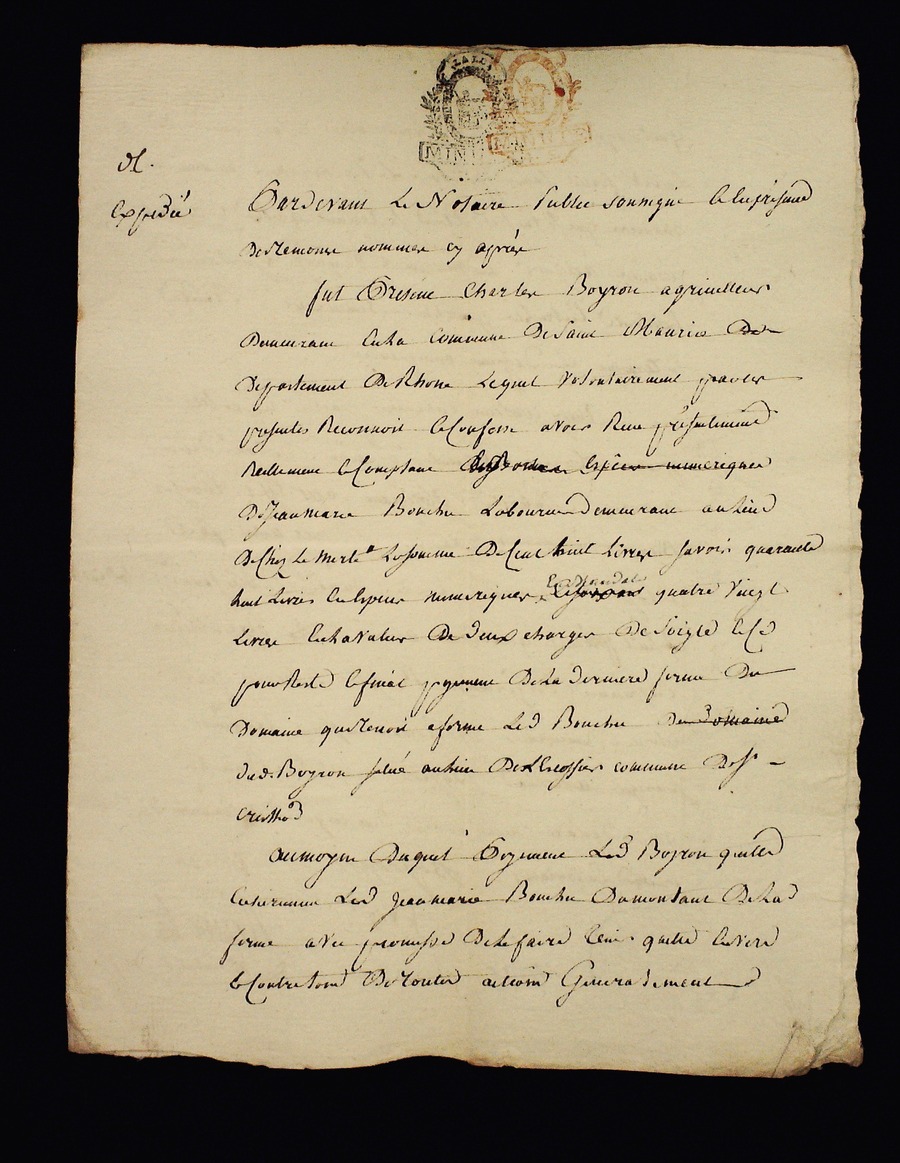 MIN
Expedié
Pardevant Le Notaire Public Soussigné Et En présence
Des temoins nommes cy après
fut Present Charles Boyron agriculteur
Demeurant En La Commune De Saint Maurice
Departement De Rhone Lequel Volontairement par ces
presentes Reconnoit Et Confesse avoir Reçu présentement
Réellement Et Comptant Espèces numeriques
De Jeanmarie Bouchu Laboureur Demeurant au Lieu
De Chez Le Merle La somme De Cent huit Livres Savoir quarante
huit Livres En Espèces numeriques quatre Vingt
Livres En La Valeur De deux charges De Soigle Et Ce
pour Reste Et final payement De La derniere ferme Du
Domaine que tenoit a ferme Led Bouchu Du Domaine
dud. Boyron situé au lieu De commune De St
Au moyen Duquel Payement Led Boyron quitte
Led Jeanmarie Bouchu Du montant De Lad
ferme avec promesse De Le faire tenir quitte Envers
Et Contre tous De toutes actions Generalement